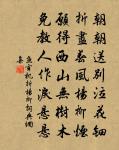 朝朝送別泣花鈿
折盡春風楊柳煙
願得西山無樹木
免教人作淚懸懸
魚玄機折楊柳詞